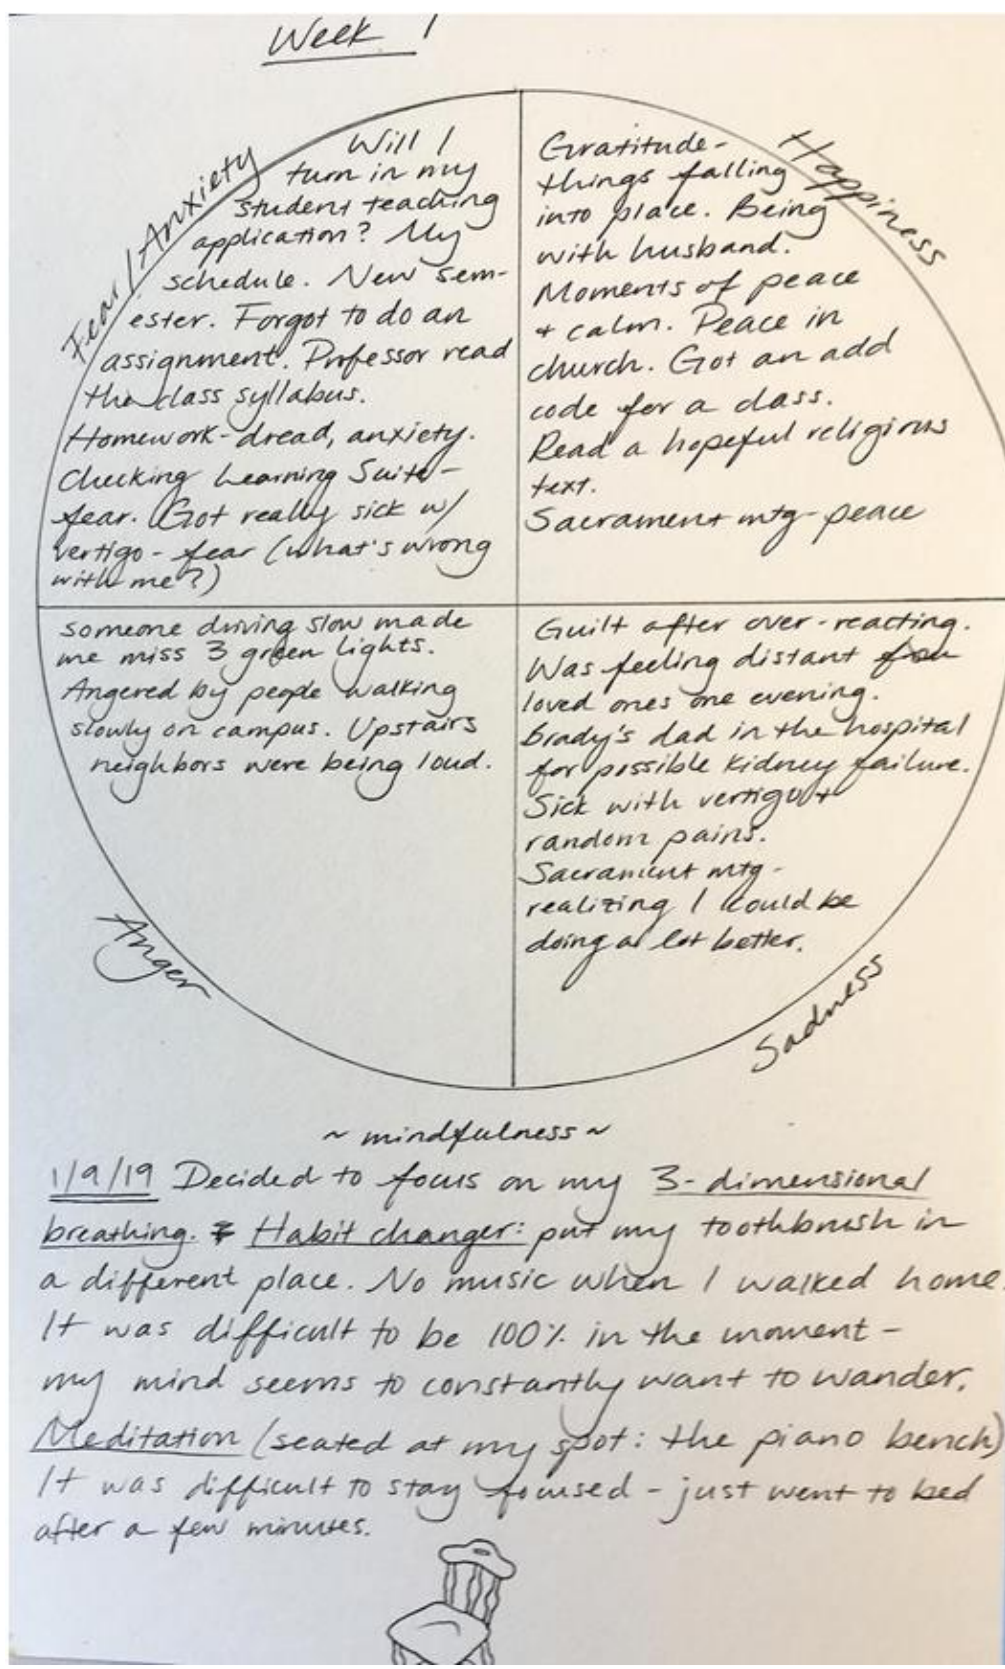 Week 1
Fear/Anxiety
Will I
turn in my
student teaching
application? My
schedule. New sem-
ester. Forgot to do an
assignment. Professor read
the class syllabus.
Homework - dread, anxiety.
Checking Learning Suite -
fear. Got really sick w/
vertigo - fear (what's wrong
with me?)
Happiness
Gratitude -
things falling
into place. Being
with husband.
Moments of peace
+ calm. Peace in
church. Got an add
code for a class.
Read a hopeful religious
text.
Sacrament mtg - peace
someone driving slow made
me miss 3 green lights.
Angered by people walking
slowly on campus. Upstairs
neighbors were being loud.
Anger
Guilt after over-reacting.
Was feeling distant
loved ones one evening.
Brady's dad in the hospital
for possible kidney failure.
Sick with vertigo +
random pains.
Sacrament mtg -
realizing I could be
doing a lot better.
Sadness
~ mindfulness ~
1/9/19 Decided to focus on my 3-dimensional
breathing. Habit changer: put my toothbrush in
a different place. No music when I walked home.
It was difficult to be 100% in the moment -
my mind seems to constantly want to wander.
Meditation (seated at my spot: the piano bench)
It was difficult to stay focused - just went to bed
after a few minutes.